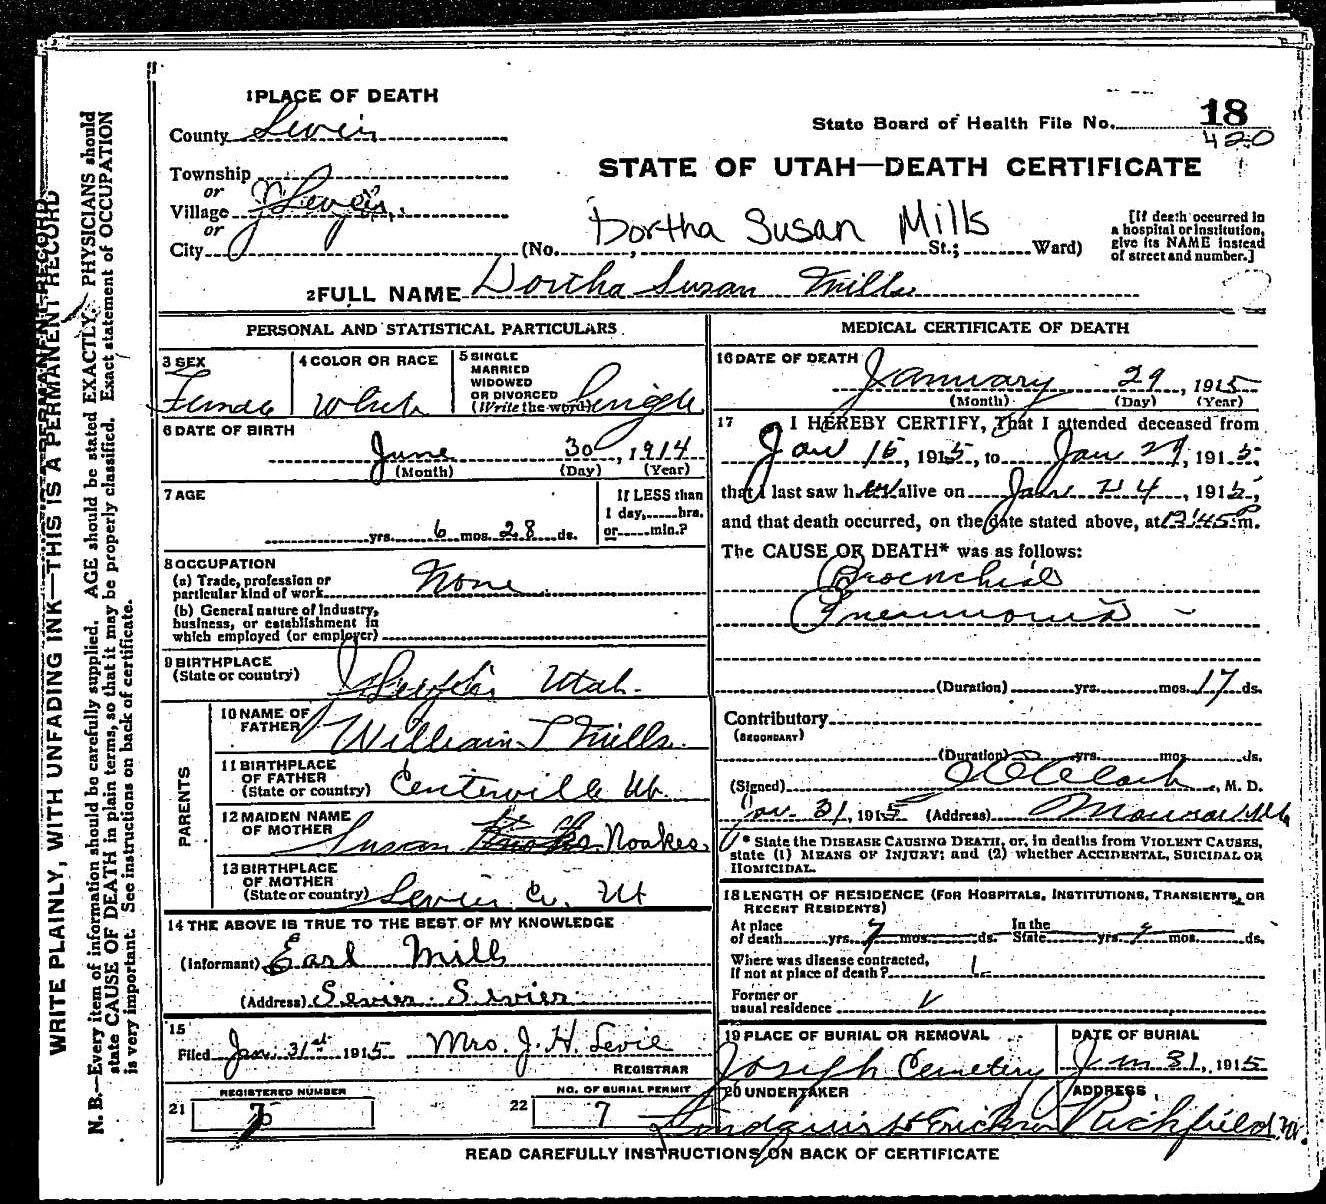 1 PLACE OF DEATH
County Sevier
State Board of Health File No. 18
420
STATE OF UTAH—DEATH CERTIFICATE
Township
or
Village
or
City
Dortha Susan Mills
(No. , St.; Ward)
[If death occurred in
a hospital or institution,
give its NAME instead
of street and number.]
2 FULL NAME Dortha Susan Mills
PERSONAL AND STATISTICAL PARTICULARS
3 SEX
Female
4 COLOR OR RACE
White
5 SINGLE
MARRIED
WIDOWED
OR DIVORCED
(Write the word) Single
6 DATE OF BIRTH
June 30, 1914
(Month) (Day) (Year)
7 AGE
yrs. 6 mos. 28 ds.
If LESS than
1 day, hrs.
or min.?
8 OCCUPATION
(a) Trade, profession or
particular kind of work None
(b) General nature of Industry,
business, or establishment in
which employed (or employer)
9 BIRTHPLACE
(State or country) Utah.
PARENTS
10 NAME OF
FATHER William Mills
11 BIRTHPLACE
OF FATHER
(State or country) Centerville Ut.
12 MAIDEN NAME
OF MOTHER Susan Noakes.
13 BIRTHPLACE
OF MOTHER
(State or country) Sevier Co. Ut
14 THE ABOVE IS TRUE TO THE BEST OF MY KNOWLEDGE
(Informant) Earl Mills
(Address) Sevier Sevier
15
Filed Jan. 31st 1915 Mrs. J. H. Levie
REGISTRAR
REGISTERED NUMBER
21
NO. OF BURIAL PERMIT
22 7
MEDICAL CERTIFICATE OF DEATH
16 DATE OF DEATH
January 29, 1915
(Month) (Day) (Year)
17 I HEREBY CERTIFY, That I attended deceased from
Jan 15, 1915, to Jan 29, 1915,
that I last saw her alive on Jan 24, 1915,
and that death occurred, on the date stated above, at 12:45 P m.
The CAUSE OF DEATH* was as follows:
Broenchial
Pneumonia
(Duration) yrs. mos. 17 ds.
Contributory
(SECONDARY)
(Duration) yrs. mos. ds.
(Signed) Clark, M. D.
Jan. 31, 1915 (Address) Monroe Utah
* State the DISEASE CAUSING DEATH, or, in deaths from VIOLENT CAUSES,
state (1) MEANS OF INJURY; and (2) whether ACCIDENTAL, SUICIDAL OR
HOMICIDAL.
18 LENGTH OF RESIDENCE (FOR HOSPITALS, INSTITUTIONS, TRANSIENTS, OR
RECENT RESIDENTS)
At place
of death yrs. 7 mos. ds.
In the
State yrs. mos. ds.
Where was disease contracted,
If not at place of death?
Former or
usual residence
19 PLACE OF BURIAL OR REMOVAL
Joseph Cemetery
DATE OF BURIAL
Jan 31, 1915
20 UNDERTAKER
Lundquist & Erickson
ADDRESS
Richfield
READ CAREFULLY INSTRUCTIONS ON BACK OF CERTIFICATE
WRITE PLAINLY, WITH UNFADING INK—THIS IS A PERMANENT RECORD
N. B.—Every item of information should be carefully supplied. AGE should be stated EXACTLY. PHYSICIANS should
state CAUSE OF DEATH in plain terms, so that it may be properly classified. Exact statement of OCCUPATION
is very important. See instructions on back of certificate.